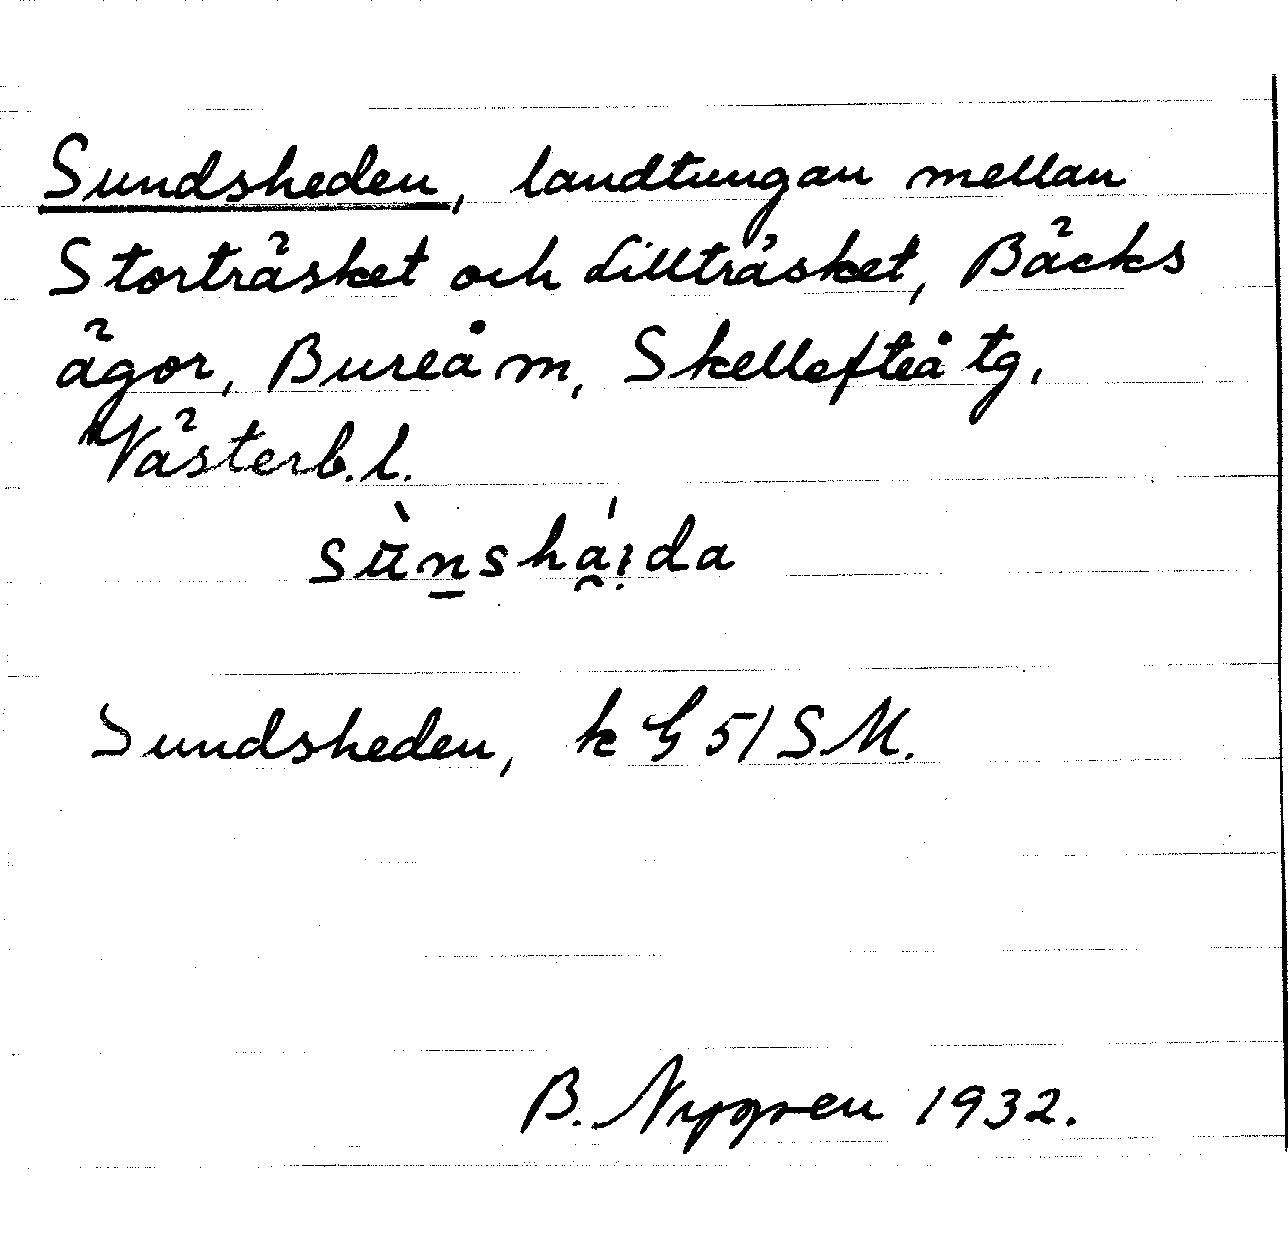 Sundsheden, landtungan mellan
Storträsket och Lillträsket, Bäcks
ägor, Bureå m, Skellefteå tg,
Västerb. l.
sùnshá̯i̯da
Sundsheden, k G 51 S M.
B. Nygren 1932.